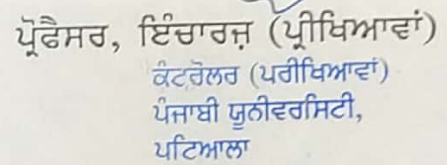 ਪ੍ਰੋਫੈਸਰ, ਇੰਚਾਰਜ਼ (ਪ੍ਰੀਖਿਆਵਾਂ)
ਕੰਟਰੋਲਰ (ਪਰੀਖਿਆਵਾਂ)
ਪੰਜਾਬੀ ਯੂਨੀਵਰਸਿਟੀ,
ਪਟਿਆਲਾ